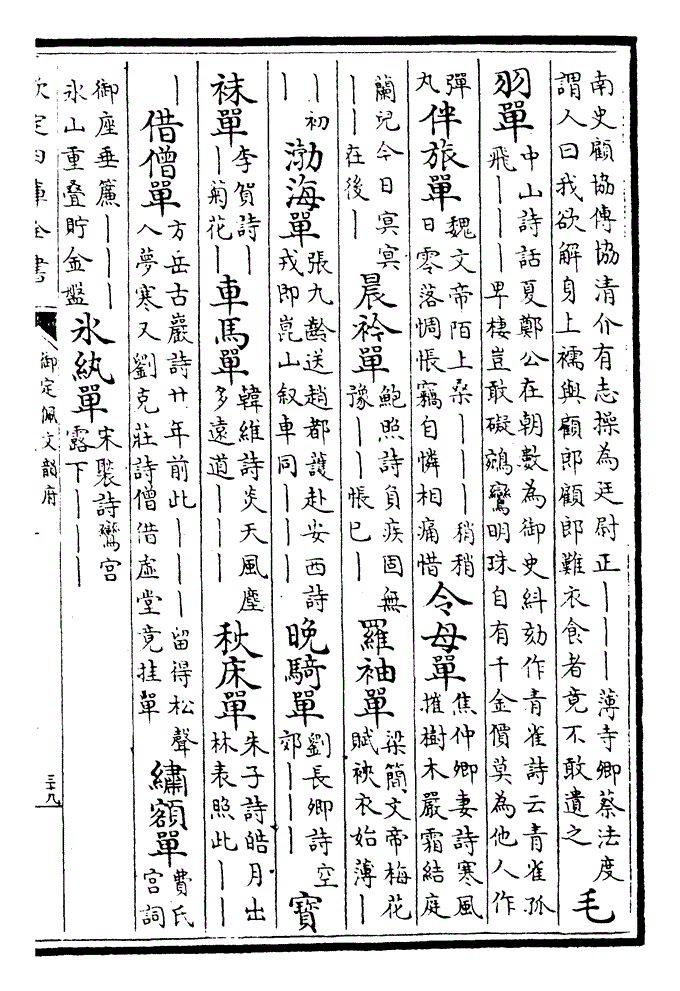 南史顧協傳協清介有志操為廷尉正丨丨丨丨薄寺卿蔡法度
謂人曰我欲解身上襦與顧郎顧郎難衣食者竟不敢遺之
毛
羽單
中山詩話夏鄭公在朝數為御史糾劾作青雀詩云青雀孤
飛丨丨丨卑棲豈敢礙鵷鸞明珠自有千金價莫為他人作
彈
丸
伴旅單
魏文帝陌上桑丨丨丨丨稍稍
日零落惆悵竊自憐相痛惜
令母單
焦仲卿妻詩寒風
摧樹木嚴霜結庭
蘭兒今日冥冥
丨丨在後丨
晨衿單
鮑照詩負疾固無
豫丨丨悵已丨
羅袖單
梁簡文帝梅花
賦袂衣始薄丨
丨丨初
丨丨
渤海單
張九齡送趙都護赴安西詩
戎即崑山敘車同丨丨丨
晚騎單
劉長卿詩空
郊丨丨丨
寶
袜單
李賀詩丨
丨菊花丨
車馬單
韓維詩炎天風塵
多遠道丨丨丨
秋床單
朱子詩皓月出
林表照此丨丨丨
丨
借僧單
方岳古巖詩廿年前此丨丨丨留得松聲
入夢寒又劉克莊詩僧借虛堂竟挂單
繡額單
費氏
宮詞
御座垂簾丨丨丨
氷山重叠貯金盤
氷紈單
宋褧詩鸞宮
露下丨丨丨
欽定四庫全書
御定佩文韻府
三十九